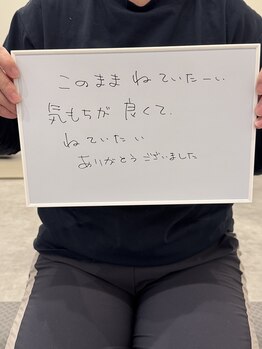 このまま ねていたーい
気もちが 良くて、
ねていたい
ありがとうございました